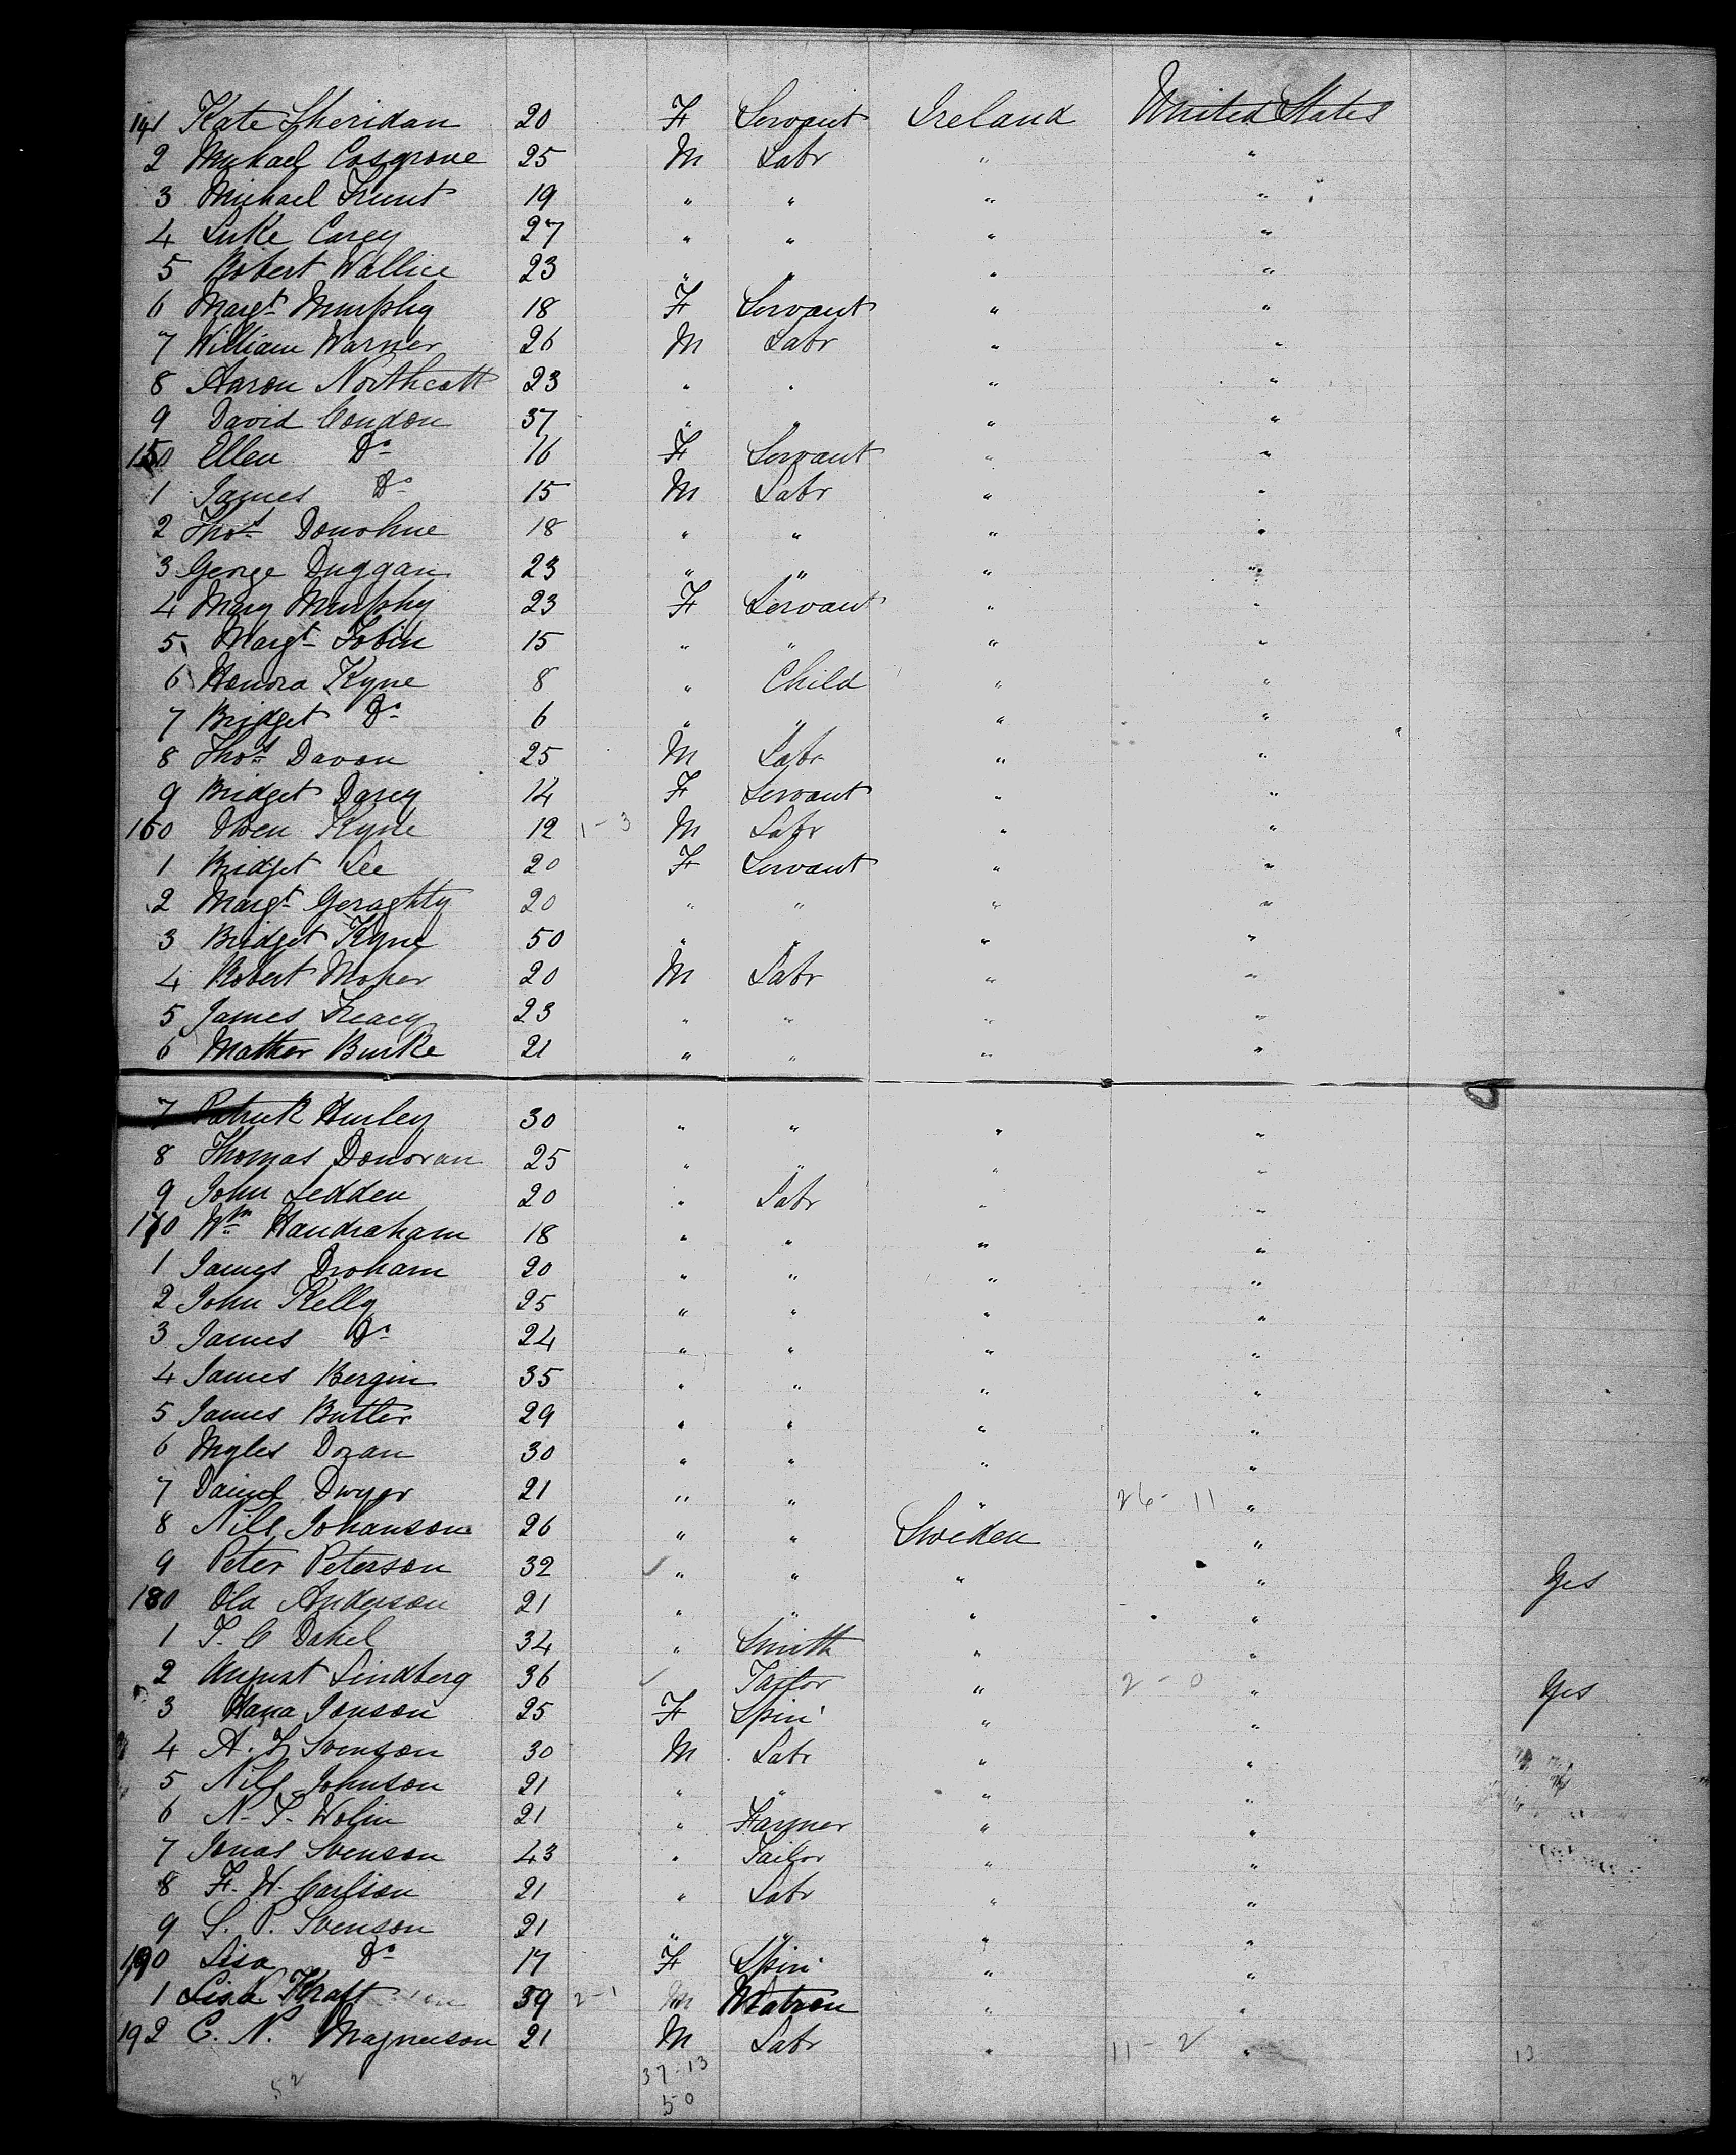 141 Kate Sheridan 20 F Servant Ireland United States
2 Michael Cosgrove 25 M Labr " "
3 Michael Hunt 19 " " " "
4 Luke Carey 27 " " " "
5 Robert Wallice 23 " " " "
6 Margt Murphy 18 F Servant " "
7 William Warner 26 M Labr " "
8 Aaron Northcott 23 " " " "
9 David Condon 37 " " " "
150 Ellen Do 16 F Servant " "
1 James Do 15 M Labr " "
2 Thos Donohue 18 " " " "
3 George Duggan 23 " " " "
4 Mary Murphy 23 F Servant " "
5 Margt Tobin 15 " " " "
6 Honora Kyne 8 " Child " "
7 Bridget Do 6 " " " "
8 Thos Davon 25 M Labr " "
9 Bridget Darcy 14 F Servant " "
160 Owen Kyne 12 1-3 M Labr " "
1 Bridget Lee 20 F Servant " "
2 Margt Geraghty 20 " " " "
3 Bridget Kyne 50 " " " "
4 Robert Moher 20 M Labr " "
5 James Treacy 23 " " " "
6 Mathew Burke 21 " " " "
7 Patrick Hurley 30 " " " "
8 Thomas Donovan 25 " " " "
9 John Ledden 20 " Labr " "
170 Wm Handraham 18 " " " "
1 James Droham 20 " " " "
2 John Kelly 25 " " " "
3 James Do 24 " " " "
4 James Bergin 35 " " " "
5 James Butler 29 " " " "
6 Myles Doran 30 " " " "
7 Daniel Dwyer 21 " " " 26-11 "
8 Nils Johanson 26 " " Sweden "
9 Peter Peterson 32 " " " " Yes
180 Ola Anderson 21 " " " "
1 T. C Dahel 34 " Smith " "
2 August Lindberg 36 Tailor " 2-0 " Yes
3 Hana Jonson 25 F Spinr " "
4 A. Svenson 30 M Labr " "
5 Nils Johnson 21 " " " "
6 N. T. Wolin 21 " Farmer " "
7 Jonas Svenson 43 " Tailor " "
8 F. W. Carlson 21 " Labr " "
9 S. P. Svenson 21 " " " "
190 Lisa Do 17 F Spinr " "
1 Lisa Kraft 39 2-1 M Matron " "
192 C. N. Magnuson 21 M Labr " 11-2 " 13
52 37-13
50